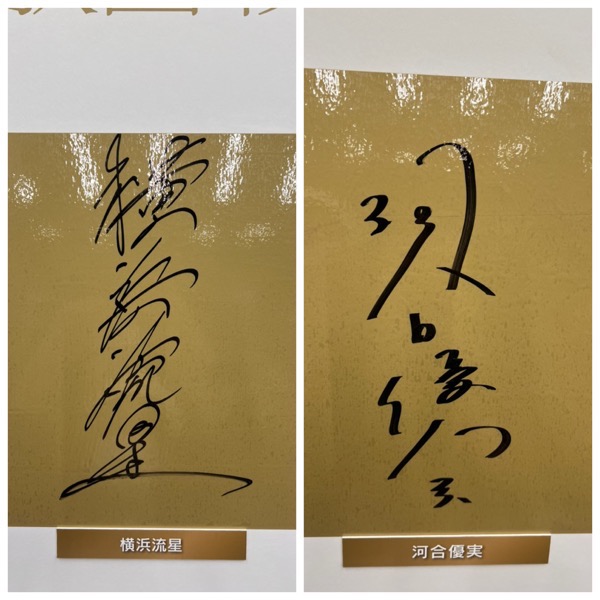 横浜流星
横浜流星
河合優実
河合優実